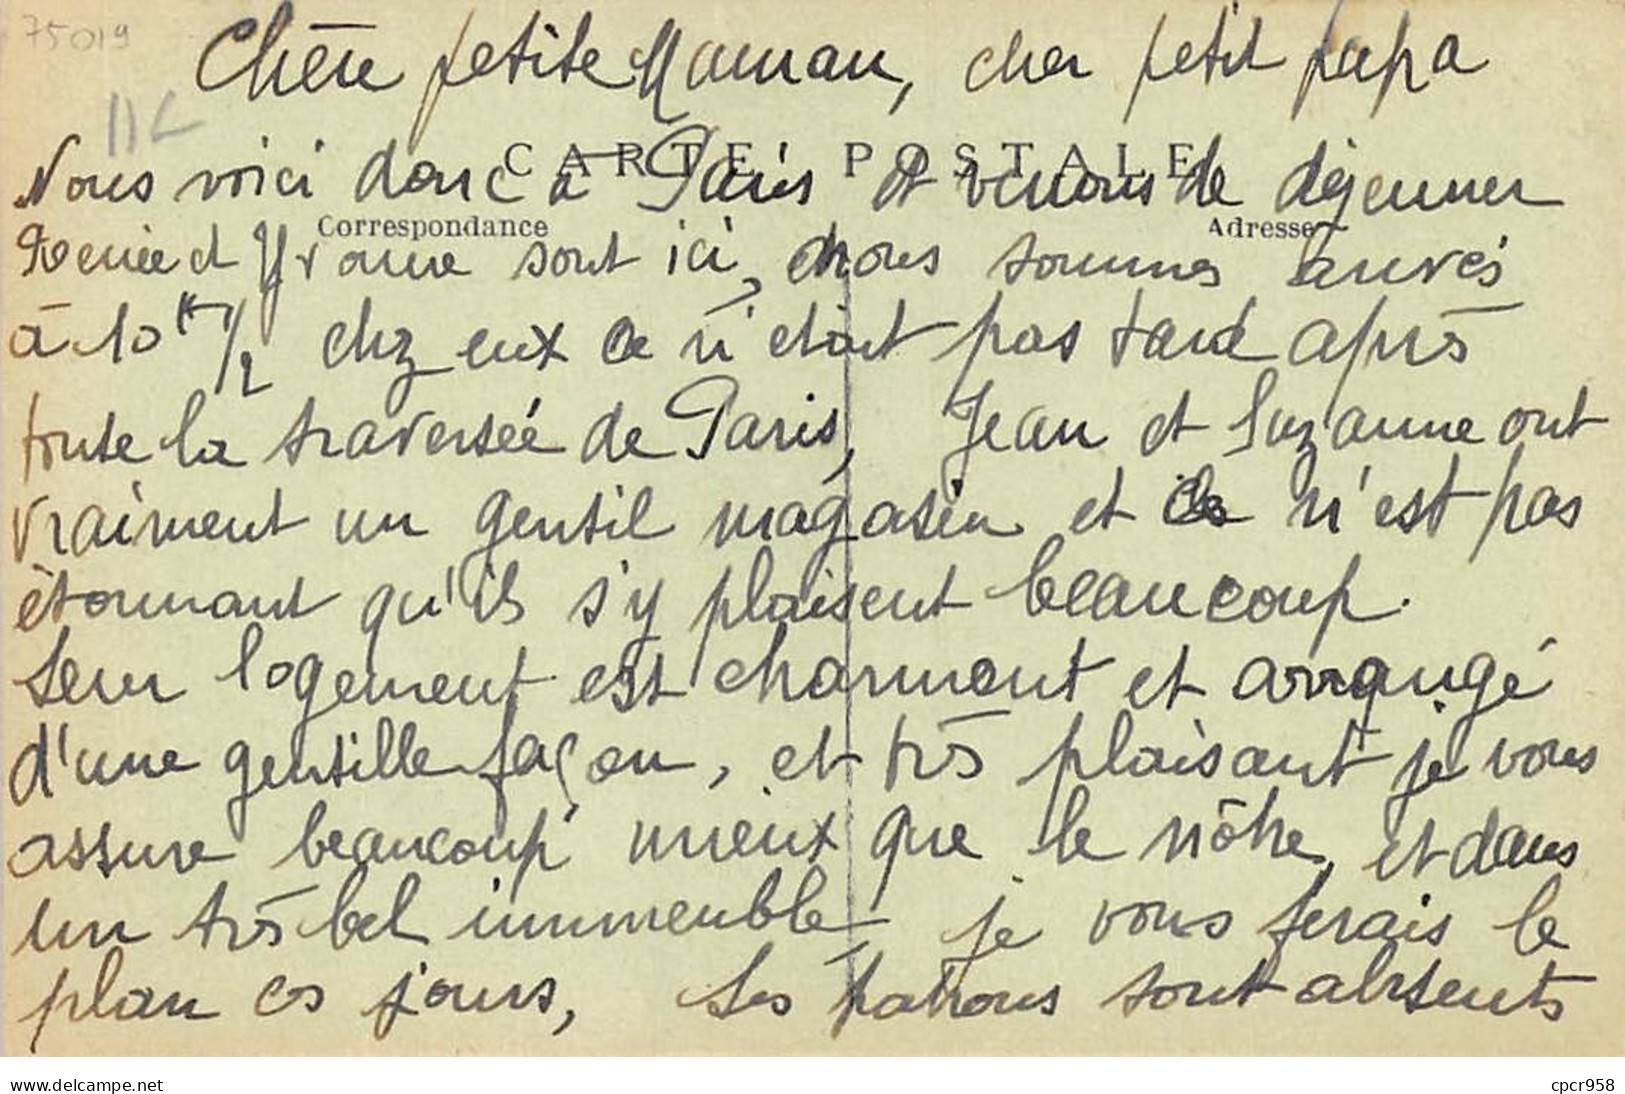 75019
Chère petite Maman, cher petit papa
CARTE POSTALE
Nous voici donc à Paris et venons de déjeuner
Correspondance
Adresse
Renée et Yvonne sont ici, nous sommes arrivés
à 10 H 1/2 chez eux ce n'était pas tard après
toute la traversée de Paris, Jean et Suzanne ont
vraiment un gentil magasin et ce n'est pas
étonnant qu'ils s'y plaisent beaucoup.
Leur logement est charmant et arrangé
d'une gentille façon, et très plaisant je vous
assure beaucoup mieux que le nôtre, et dans
un très bel immeuble je vous ferais le
plan ces jours, Les patrons sont absents
www.delcampe.net
cpcr958